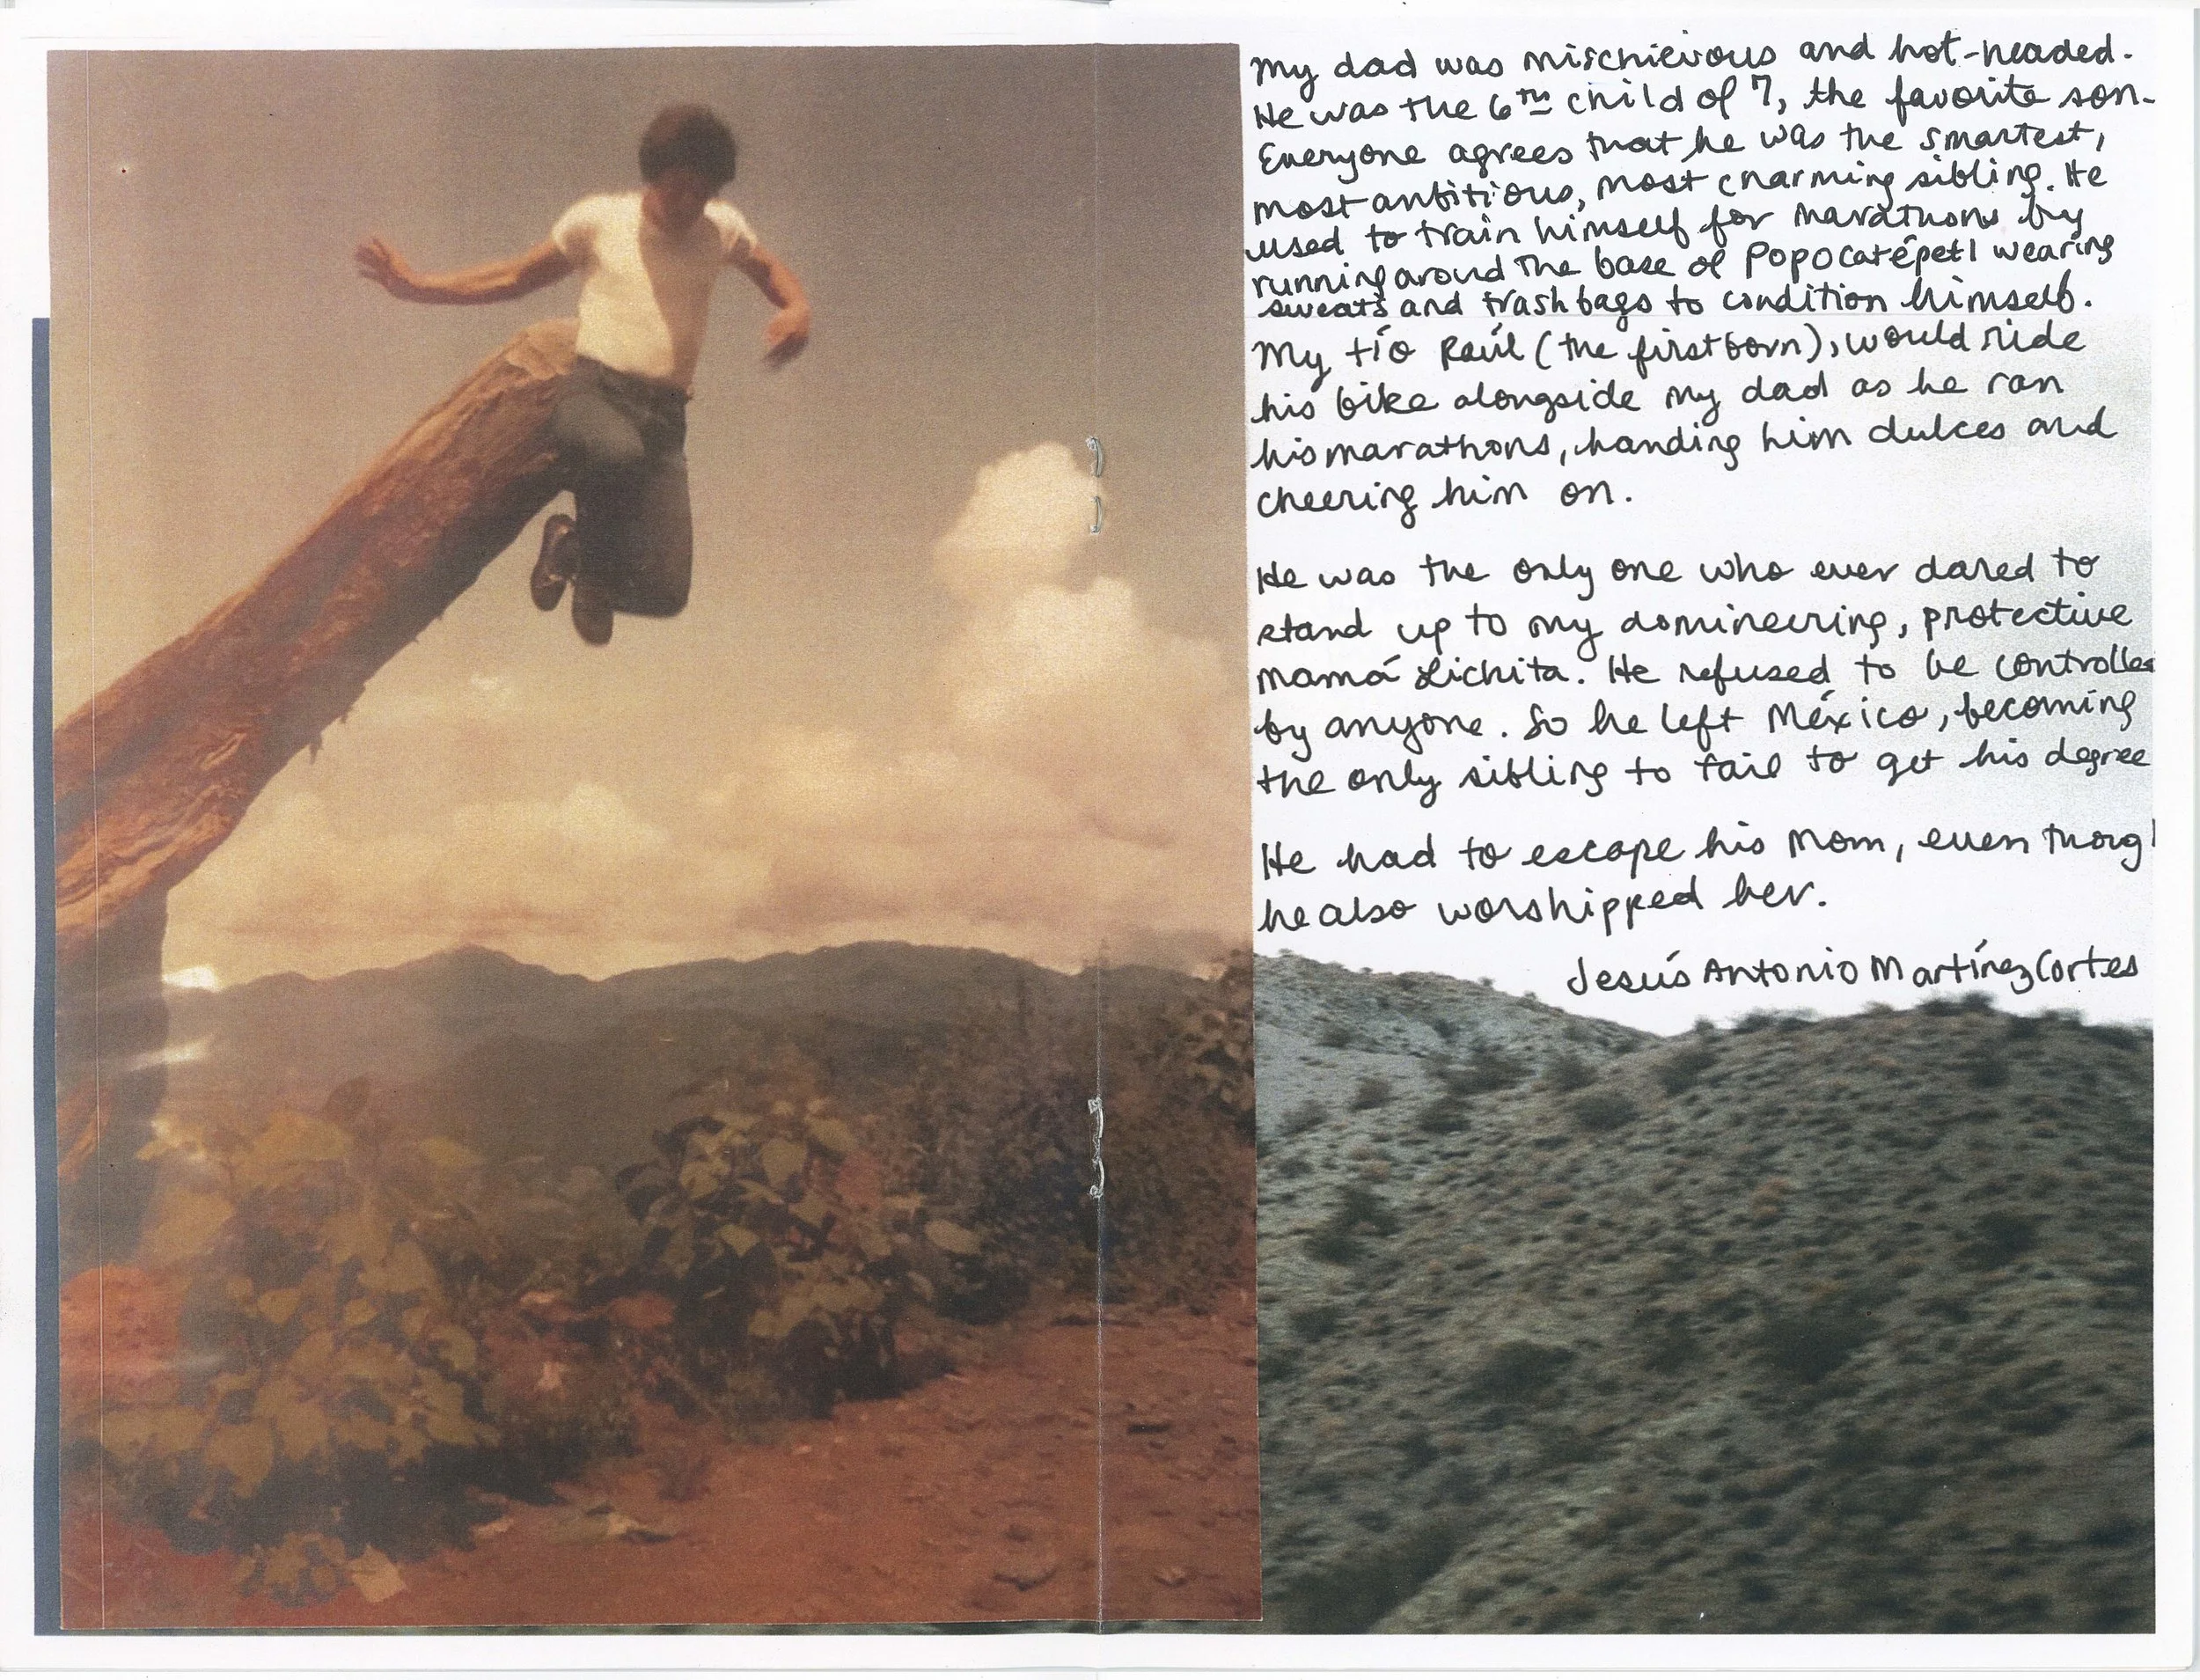 My dad was mischievous and hot-headed.
He was the 6th child of 7, the favorite son.
Everyone agrees that he was the smartest,
most ambitious, most charming sibling. He
used to train himself for marathons by
running around the base of Popocatépetl wearing
sweats and trash bags to condition himself.
My tío Raúl (the firstborn), would ride
his bike alongside my dad as he ran
his marathons, handing him dulces and
cheering him on.
He was the only one who ever dared to
stand up to my domineering, protective
mamá Lichita. He refused to be controlled
by anyone. So he left México, becoming
the only sibling to fail to get his degree
He had to escape his mom, even thoug
he also worshipped her.
Jesús Antonio Martínez Cortes